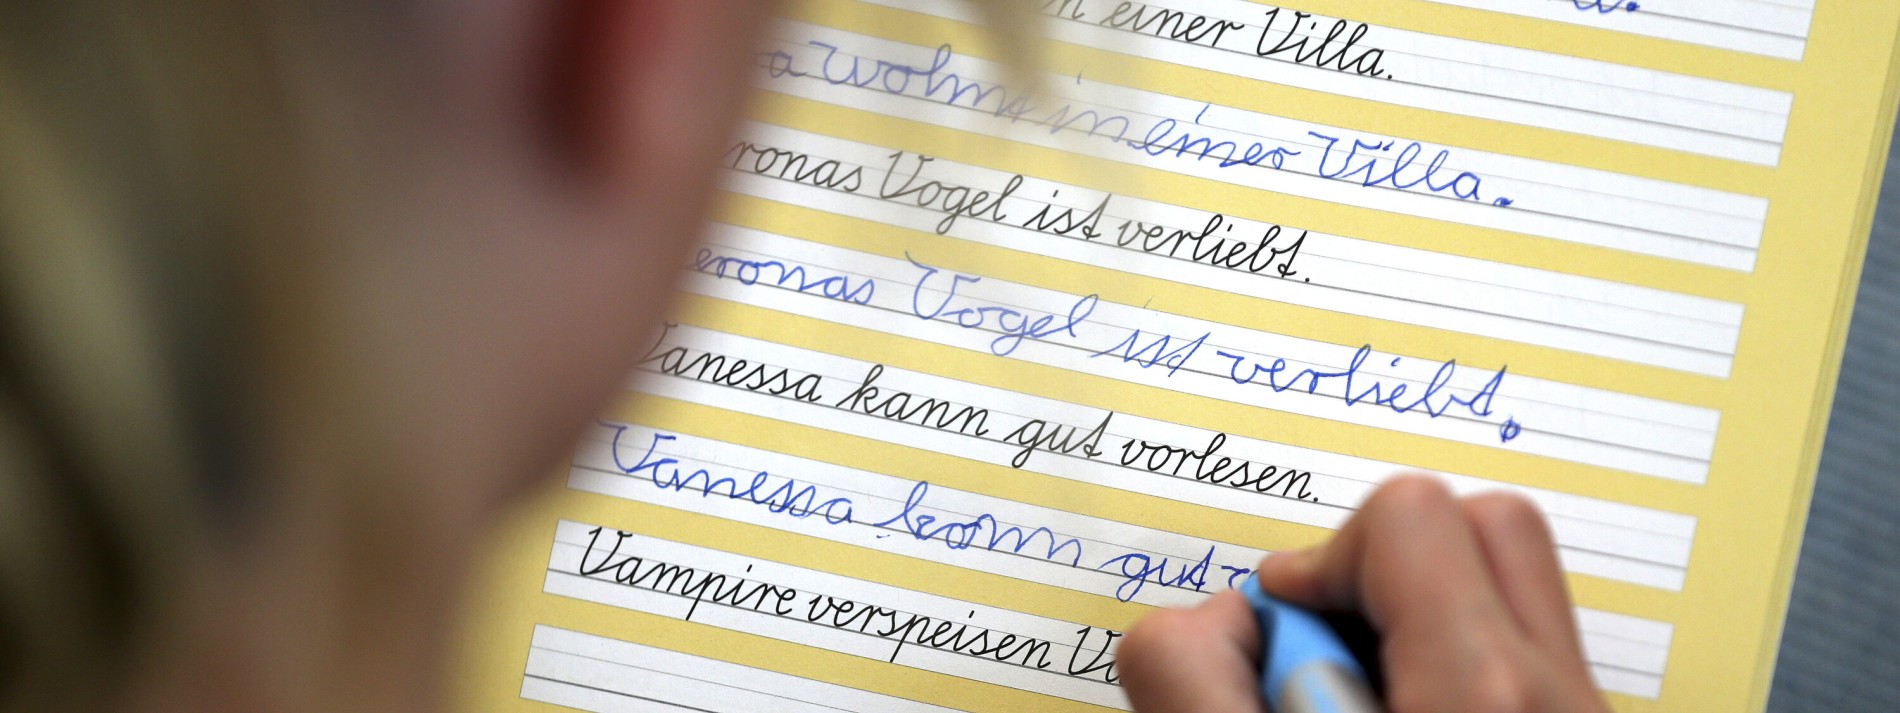 einer Villa.
wohnt in einer Villa.
Vogel ist verliebt.
Vogel ist verliebt.
Vanessa kann gut vorlesen.
Vanessa kann gut
Vampire verspeisen